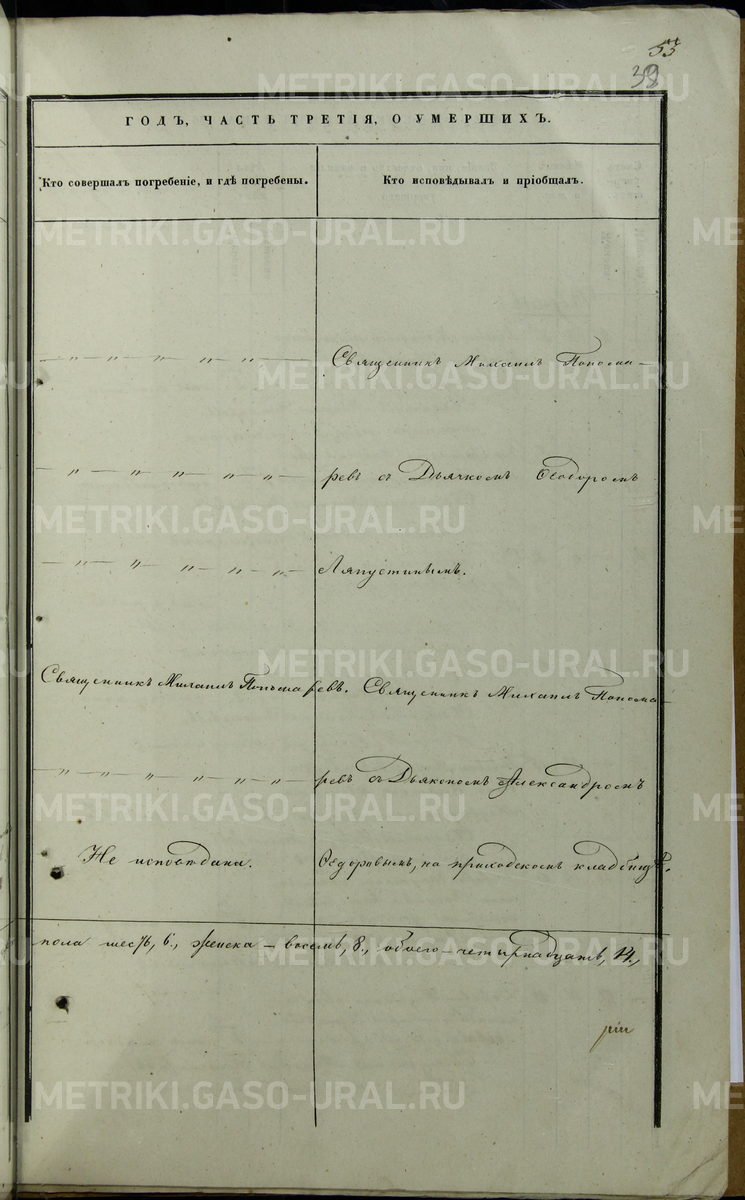 53
38
ГОДЪ, ЧАСТЬ ТРЕТІЯ, О УМЕРШИХЪ.
Кто совершалъ погребеніе, и гдѣ погребены.
Кто исповѣдывалъ и пріобщалъ.
— „ — „ — „ „ „ — Священникъ Михаилъ Попома-
— „ — „ „ „ „ — ревъ съ Дьячкомъ Ѳеодоромъ
— „ — „ „ „ „ — Ляпустинымъ.
Священникъ Михаилъ Попомаревъ. Священникъ Михаилъ Попома-
— „ — „ „ „ „ — ревъ съ Дьякономъ Александромъ
Не исповѣдана. Ѳедоровымъ, на приходскомъ кладбищѣ.
пола шесть, 6., женска — восемь, 8., обоего — четырнадцать, 14.,
METRIKI.GASO-URAL.RU